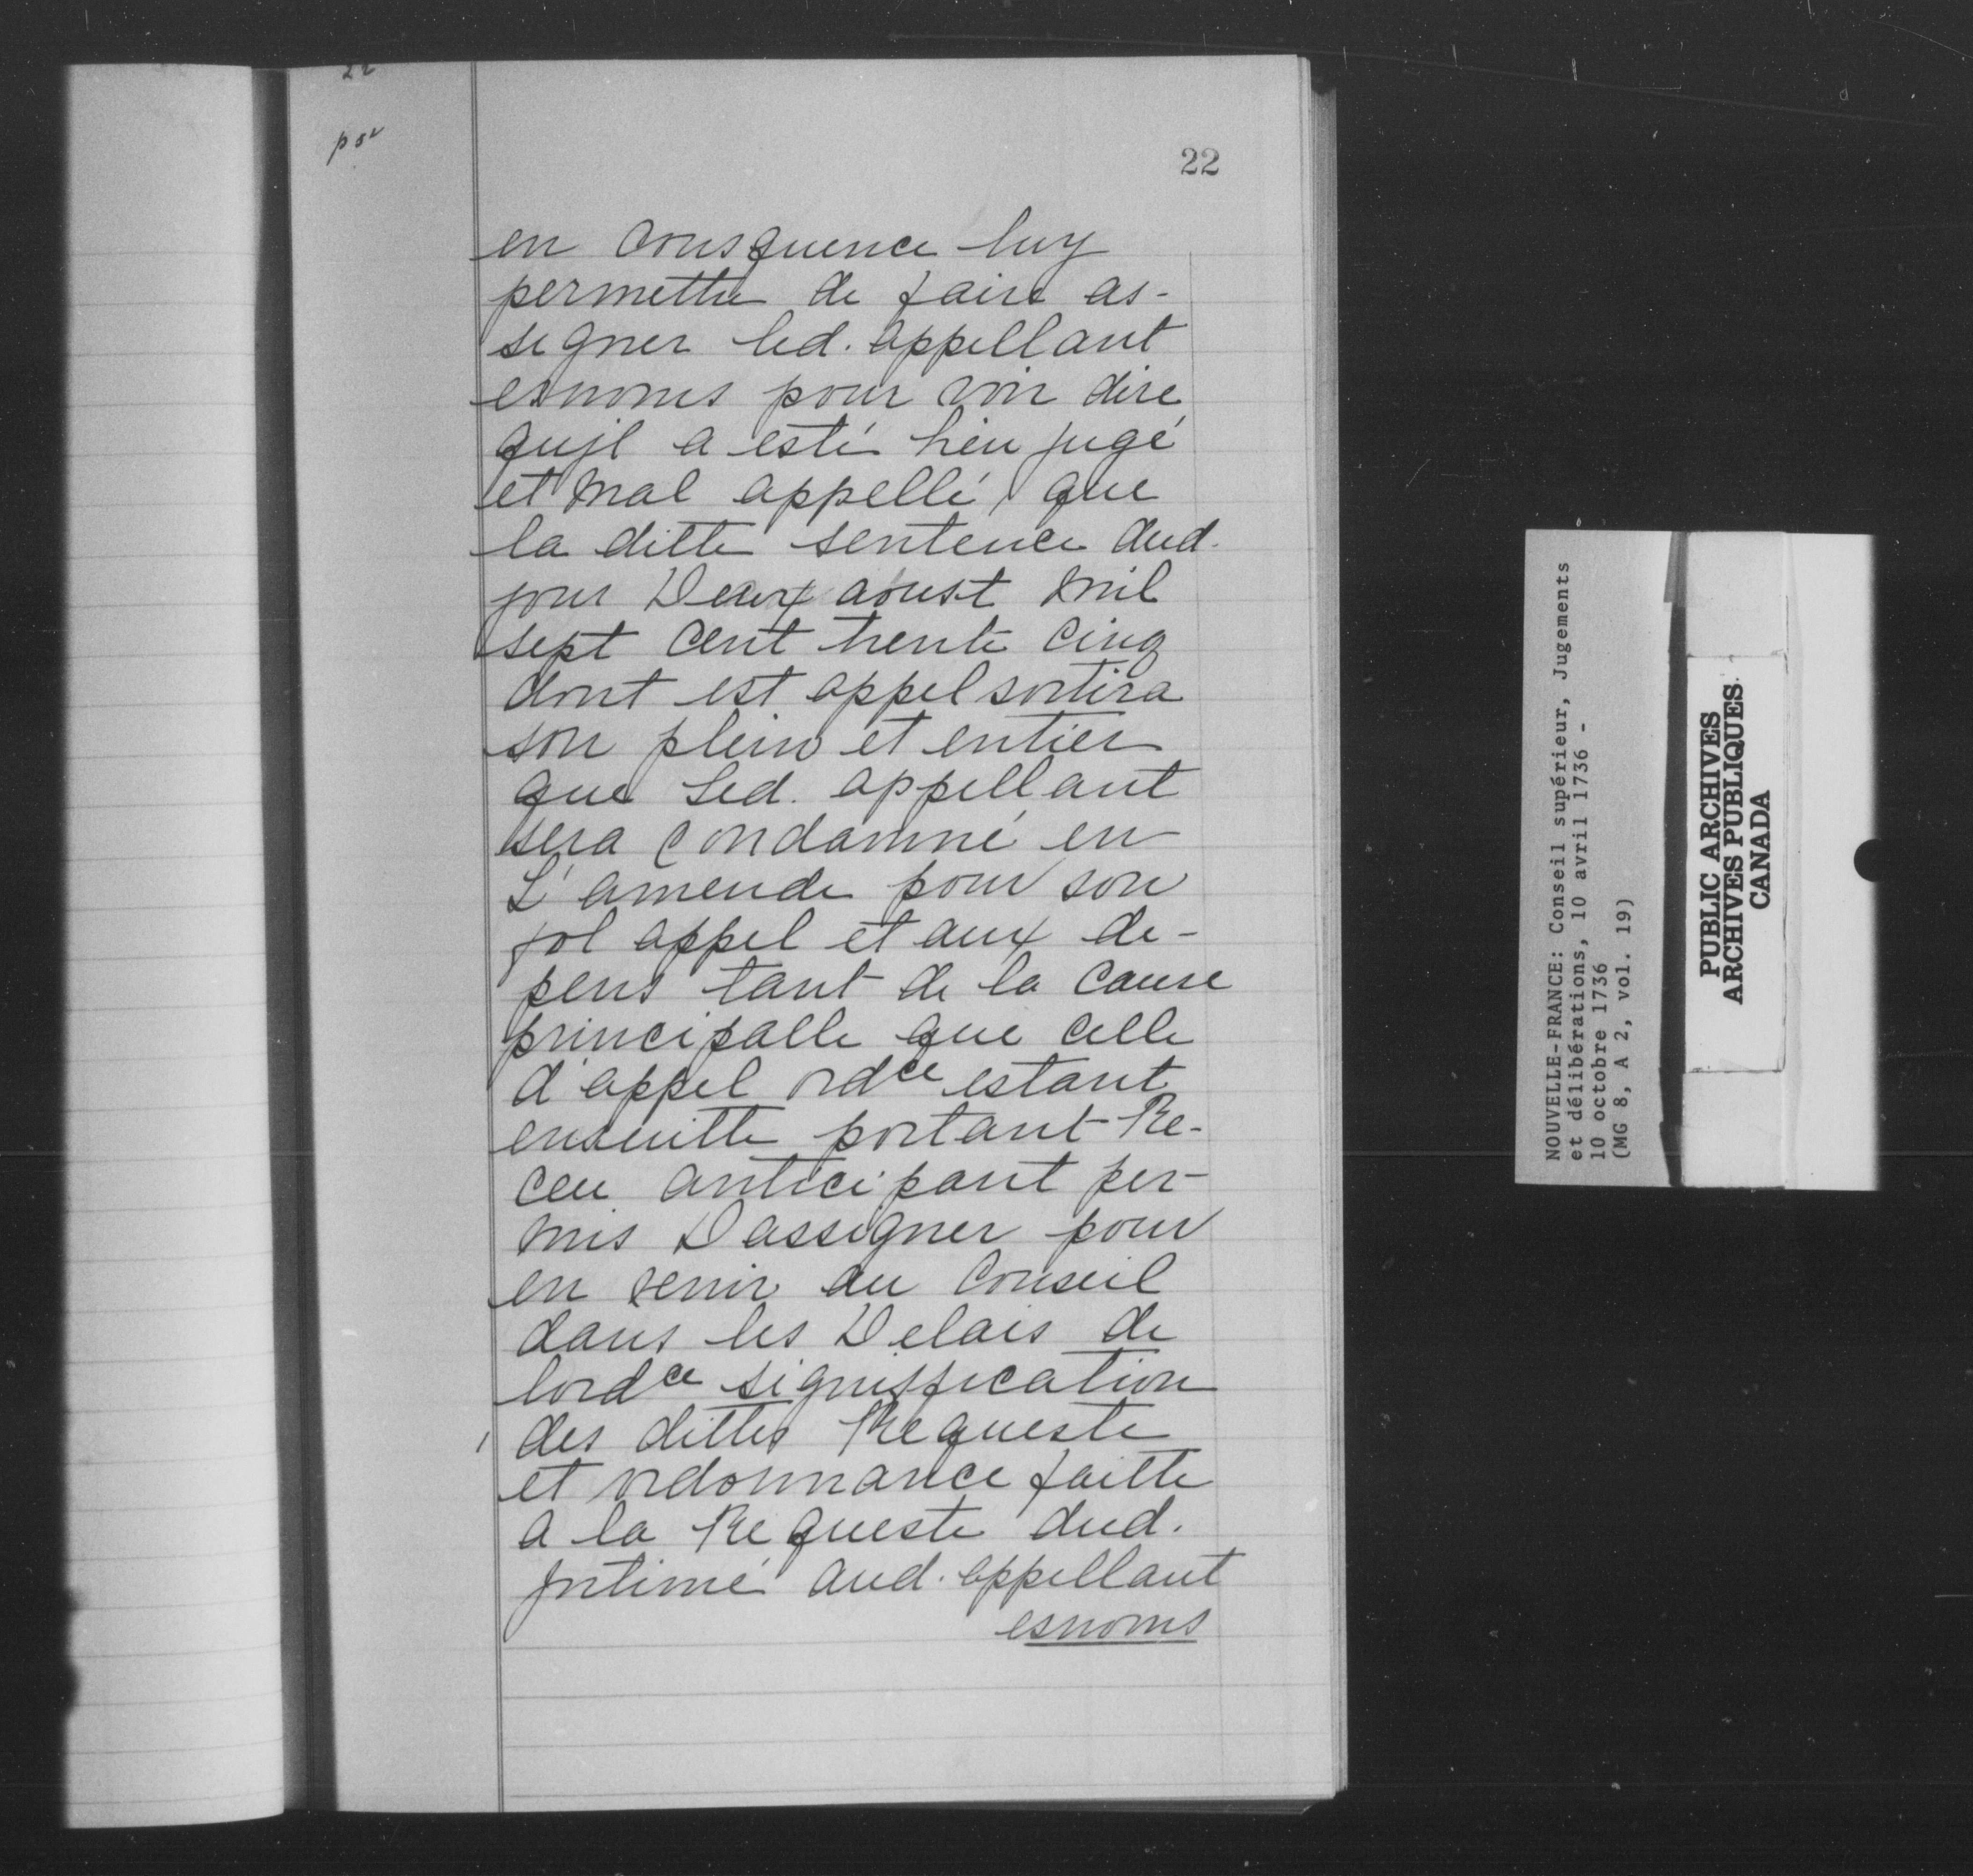 22
p 5v
22
en consquence luy
permettre de faire as-
signer led. appellant
esnoms pour voir dire
qujl a esté bien jugé
et mal appellé, que
la ditte sentence dud.
jour Deux aoust mil
sept cent trente cinq
dont est appel sortira
son plein et entier
que Led. appellant
sera condamné en
L'amende pour son
fol appel et aux de-
pens tant de la cause
principalle que celle
d'appel ordce estant
ensuitte portant Re-
ceu anticipant per-
mis D assigner pour
en venir au Conseil
dans les Delais de
lordce signiffication
des dittes Requeste
et ordonnance faitte
a la Requeste dud.
jntimé aud. appellant
esnoms
NOUVELLE-FRANCE: Conseil supérieur, Jugements
et délibérations, 10 avril 1736 -
10 octobre 1736
(MG 8, A 2, vol. 19)
PUBLIC ARCHIVES
ARCHIVES PUBLIQUES
CANADA